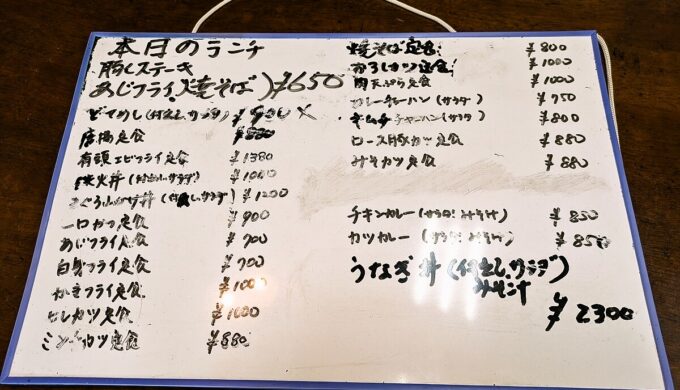 本日のランチ
豚しステーキ
あじフライ、焼そば)¥1650
どてめし(付出しサラダ) ¥900 ×
唐揚定食 ¥880
有頭エビフライ定食 ¥1380
(付出しサラダ) ¥1000
まぐろ山かけ丼(付出しサラダ) ¥1200
一口かつ定食 ¥900
あじフライ定食 ¥700
白身フライ定食 ¥700
かきフライ定食 ¥1000
ヒレカツ定食 ¥1000
ミンチカツ定食 ¥880
焼そば定食! ¥800
おろしカツ定食! ¥1000
天ぷら定食 ¥1000
カレーチャーハン(サラダ) ¥750
キムチチャーハン(サラダ) ¥800
ロース豚カツ定食 ¥880
みそカツ定食 ¥880
チキンカレー(サラダ!みそ汁) ¥850
カツカレー(サラダ!みそ汁) ¥850
うなぎ丼(付出し.サラダ)
みそ汁
¥2300